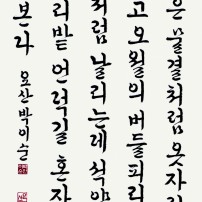 은 물결처럼 옷자락
고 오월의 버들피리
처럼 날리는데 석양
리밭 언덕길 혼자
본다
박이순